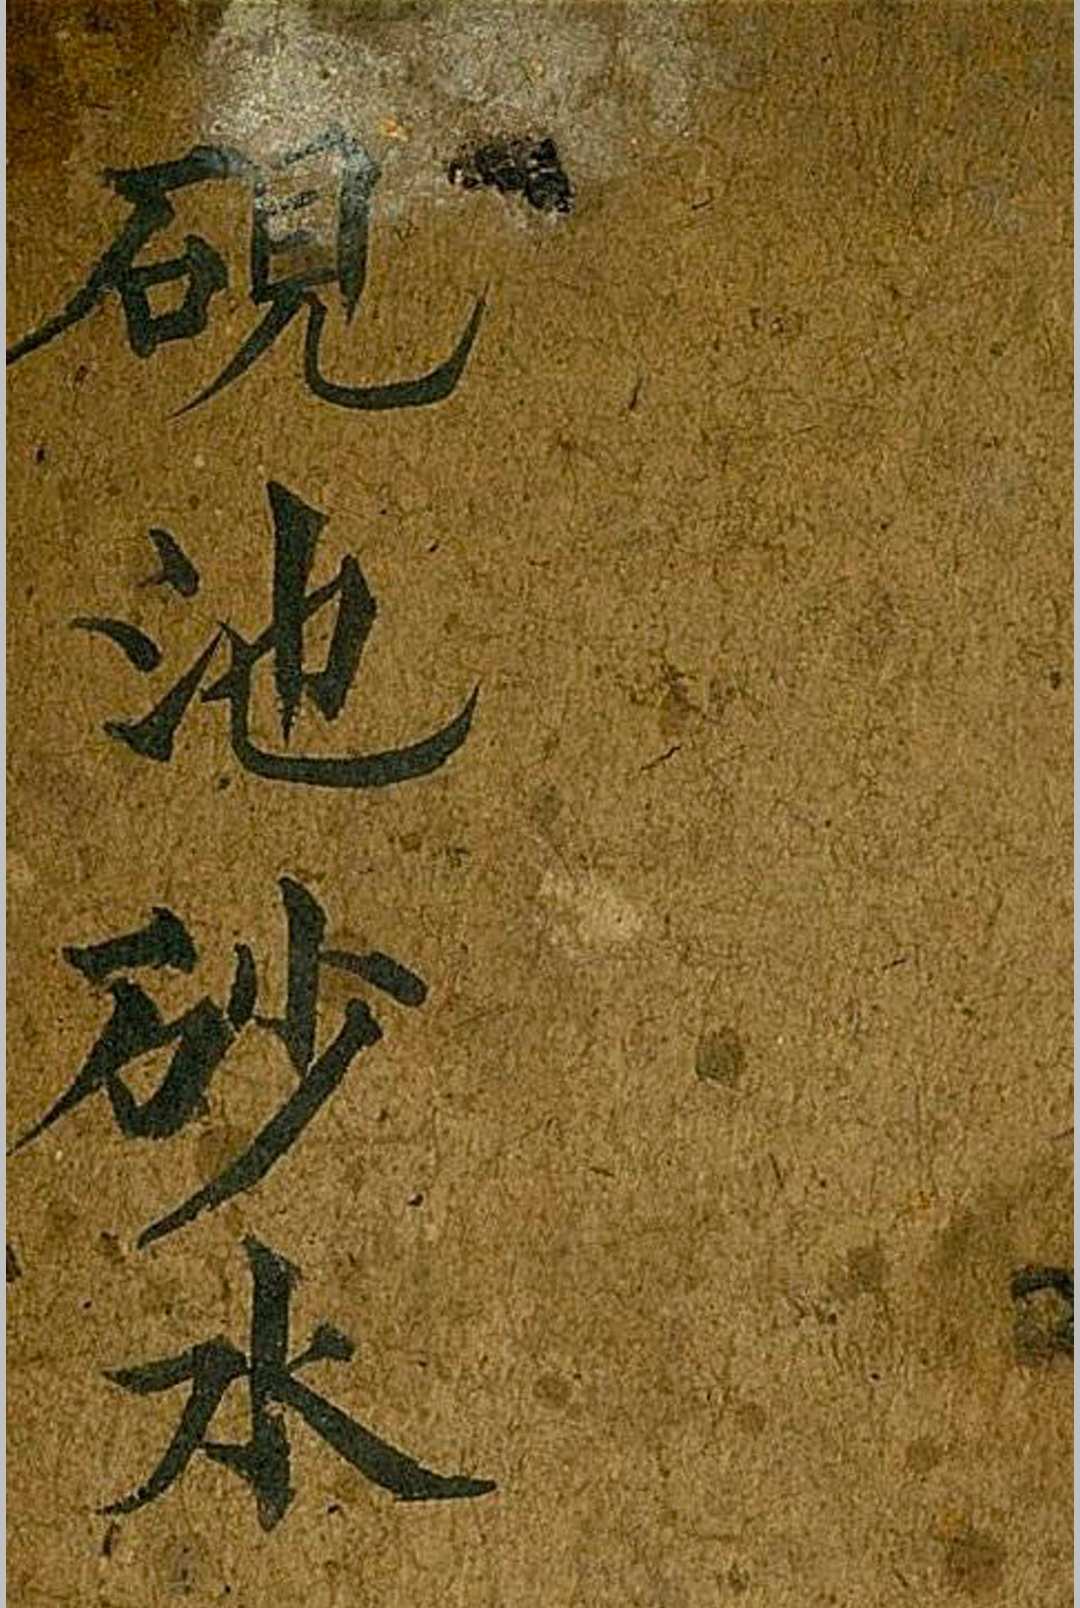 硯池砂水